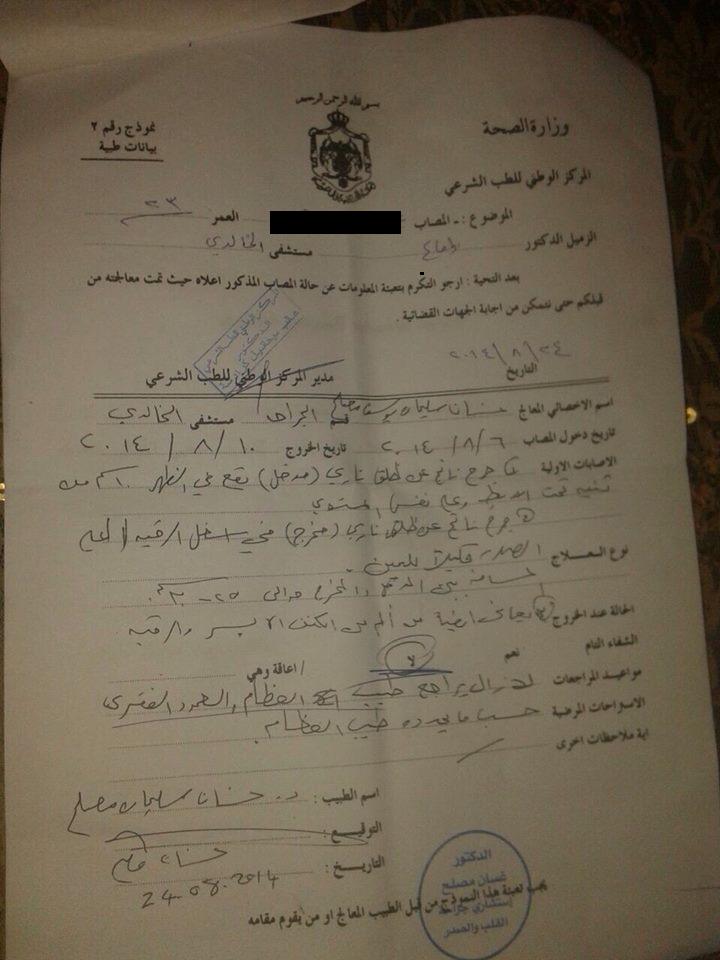 بسم الله الرحمن الرحيم
وزارة الصحة
نموذج رقم ٢
بيانات طبية
المركز الوطني للطب الشرعي
الموضوع : ـ المصاب العمر ٢٣
الزميل الدكتور مستشفى الخالدي
بعد التحية : ارجو التكرم بتعبئة المعلومات عن حالة المصاب المذكور اعلاه حيث تمت معالجته من
قبلكم حتى نتمكن من اجابة الجهات القضائية .
التاريخ ٢٤/٨/٢٠١٤
مدير المركز الوطني للطب الشرعي
اسم الاخصائي المعالج سليمان مصلح قسم الجراحة مستشفى الخالدي
تاريخ دخول المصاب ٦/٨/٢٠١٤ تاريخ الخروج ١٠/٨/٢٠١٤
الاصابات الاولية جرح ناتج عن طلق ناري (مدخل) يقع في الظهر ١٠ سم من
تحت الابط وعلى نفس المستوى
جرح ناتج عن طلق ناري (مخرج) في اسفل الرقبة اعلى
الصدر قليلاً لليمين .
نوع العلاج
المسافة بين المدخل والمخرج حوالي ٢٥-٣٠ سم .
الحالة عند الخروج يعاني من ألم من الكتف الايسر والرقبة
الشفاء التام نعم لا / اعاقة وهي
مواعيد المراجعات لا زال يراجع طبيب العظام والعمود الفقري
الاستراحات المرضية حسب ما يحدده طبيب العظام .
اية ملاحظات اخرى
اسم الطبيب : د. سليمان مصلح
التوقيع :
التاريخ : 24.08.2014
الدكتور
غسان مصلح
إستشاري جراحة
القلب والصدر
يجب تعبئة هذا النموذج من قبل الطبيب المعالج او من يقوم مقامه